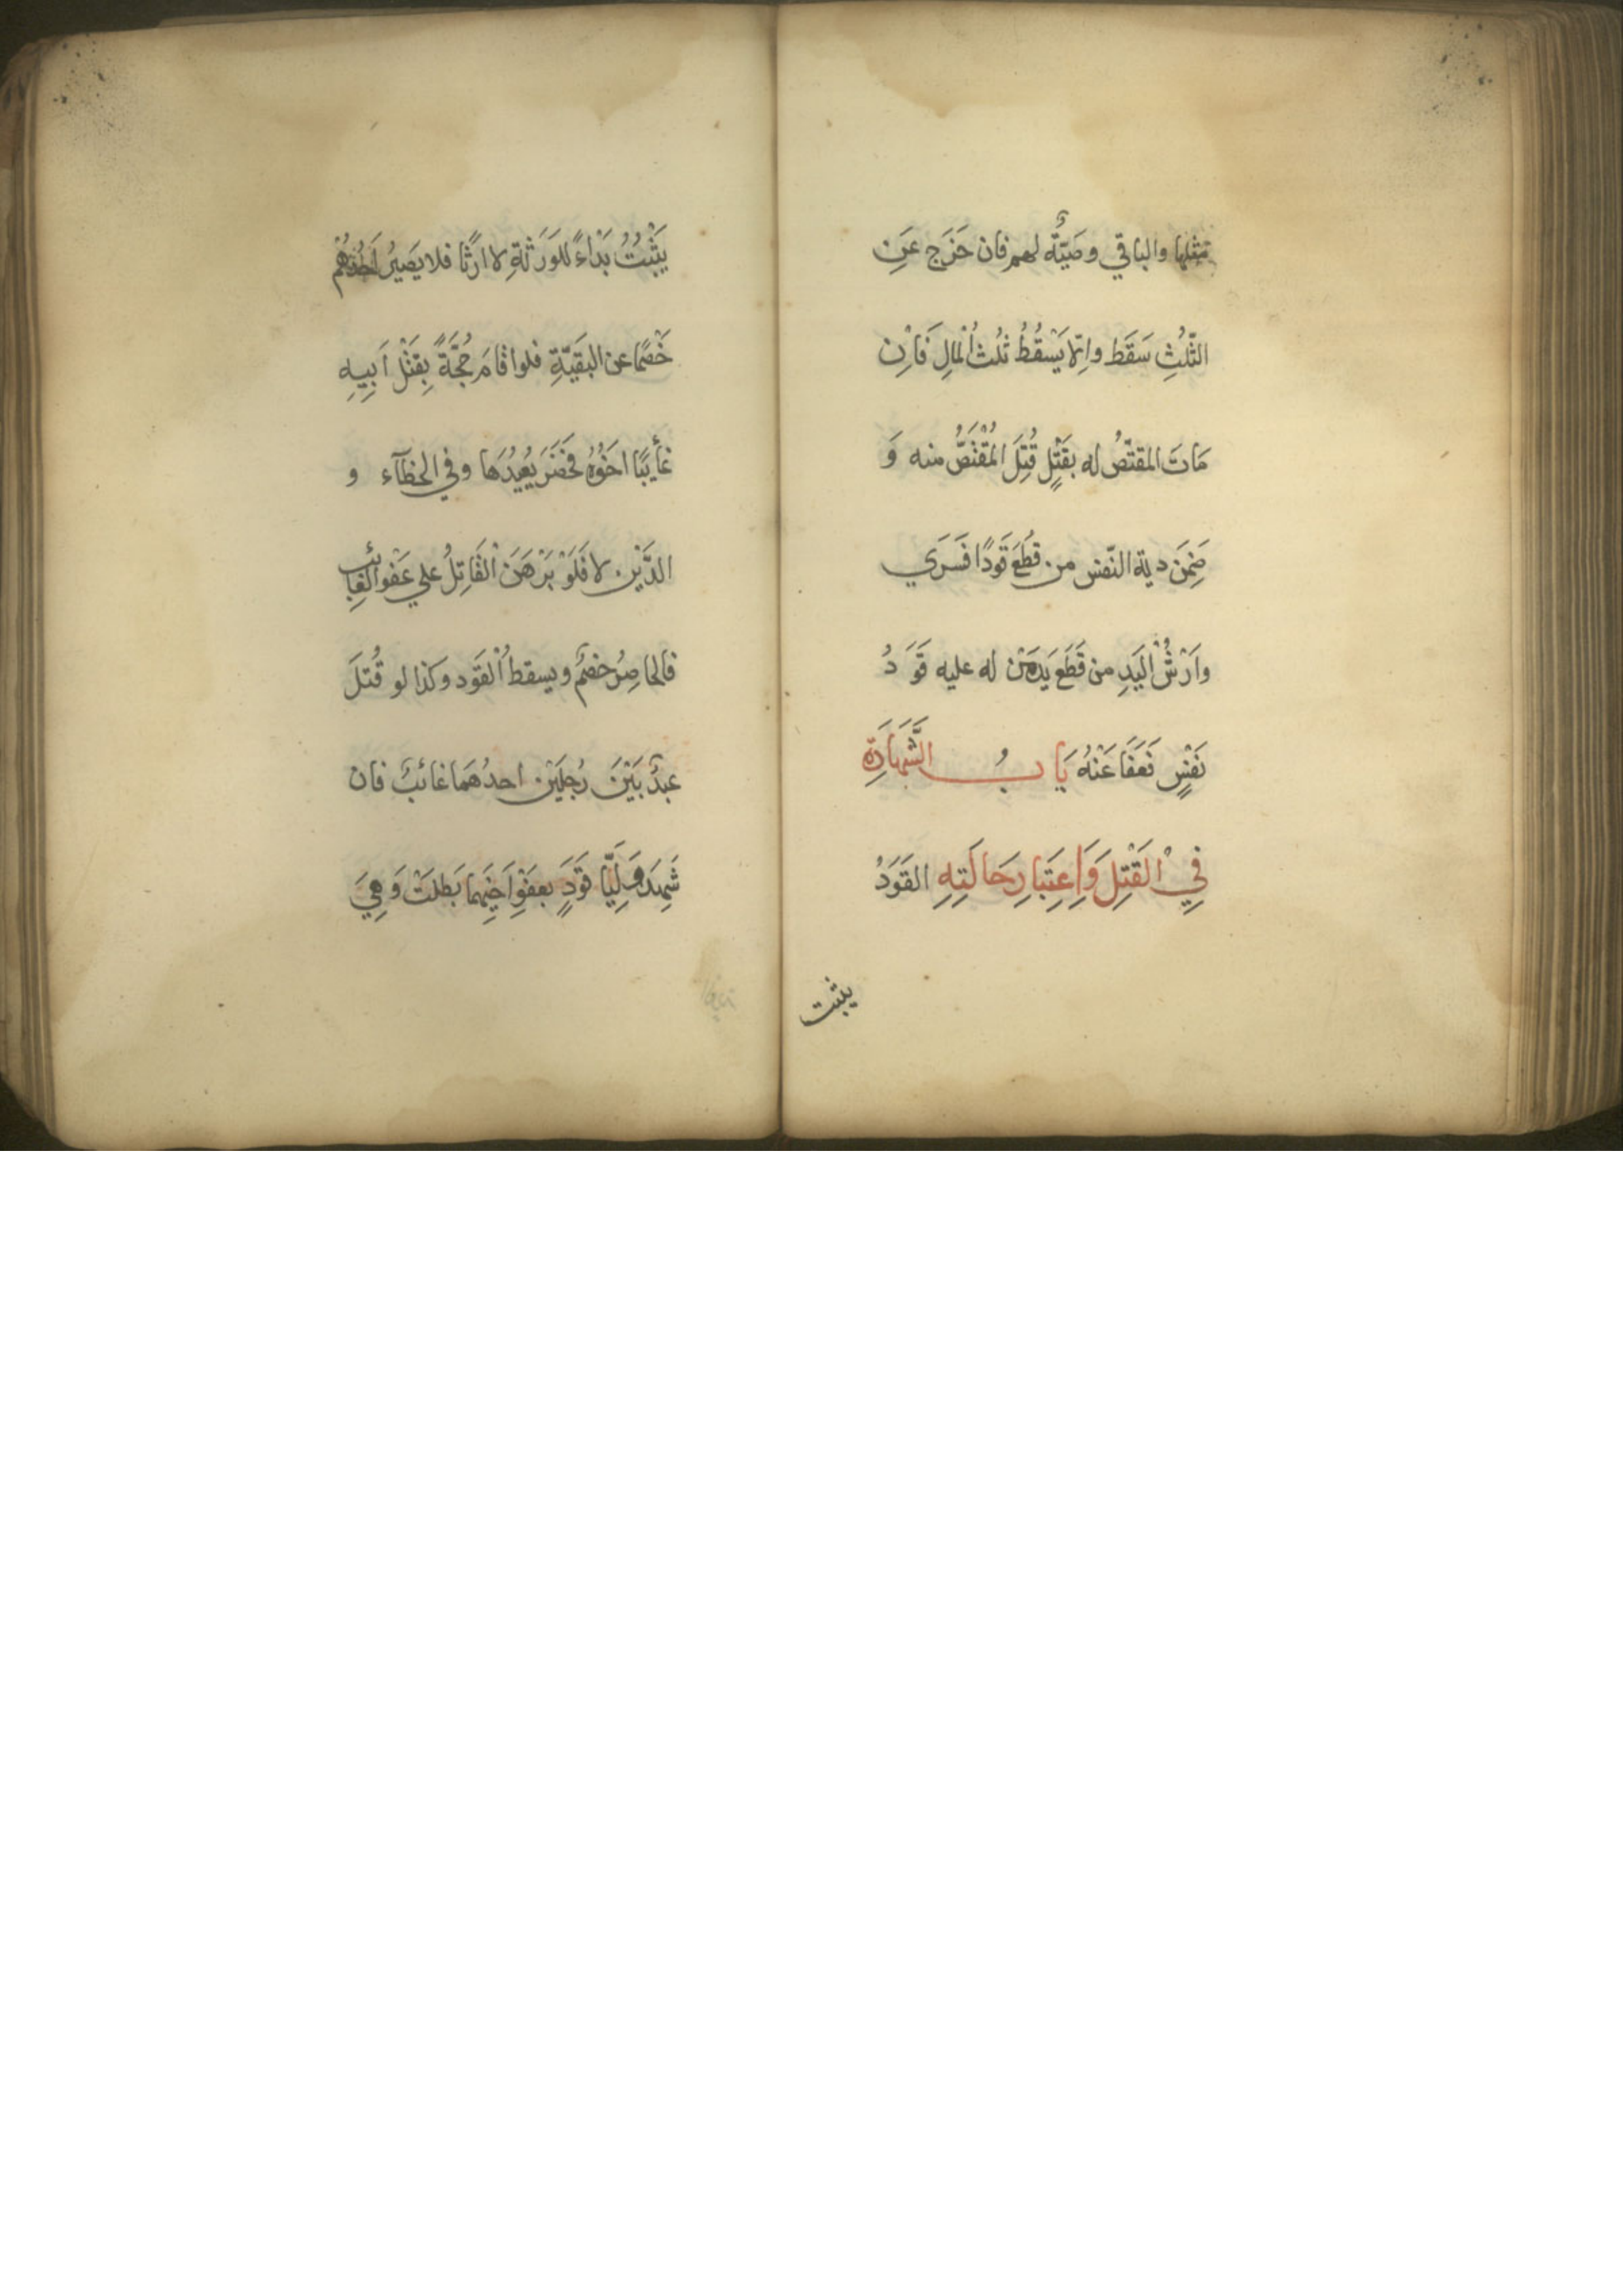 مثلها والباقي وَصيَّةٌ لهم فان خَرَج عَنِ
الثّلُثِ سَقَط واِلّا يَسْقُطُ ثلُث اُلْمالِ فَاِن
مَاتَ المقتصُّ له بقَتْلٍ قُتِلَ المُقْتَصُّ منه وَ
ضَمِنَ دية النّفس من قُطِعَ قَودًا فَسَرَي
وَاَرْشُ اْليَدِ من قَطَعَ يَدَ مَنْ له عليه قَوَدُ
نَفْسٍ فَعَفَا عَنْهُ بَابُ الشَّهَادَةِ
فِي اْلقَتْلِ وَاِعِتَبارِ حَالَتِهِ القَوَدُ
يثبت
يَثْبُتُ بَدْاءً للوَرَثةِ لا ارثًا فلا يَصيرُ اَحَدُهُمْ
خَصْمًا عن البَقيّةِ فلو اقامَ حُجَّةً بِقَتْلِ اَبِيهِ
غأيبًا اخَوُهُ فحَضَرَ يُعِيدُهَا وفي الخطآء و
الدَّيْنِ لا فَلَوْ بَرْهَنَ اْلقَاتِلُ علي عَفو الغائِب
فالحاضِرُ خصمٌ ويسقط اُلْقَود وكذا لو قُتلَ
عبدٌ بَيْنَ رُجلَيْنِ احدُهمَا غائبٌ فان
شَهِدَ وَلِيَّا قَوَدٍ بعفْوِ اَخِيهِما بَطلَتْ وَهِيَ